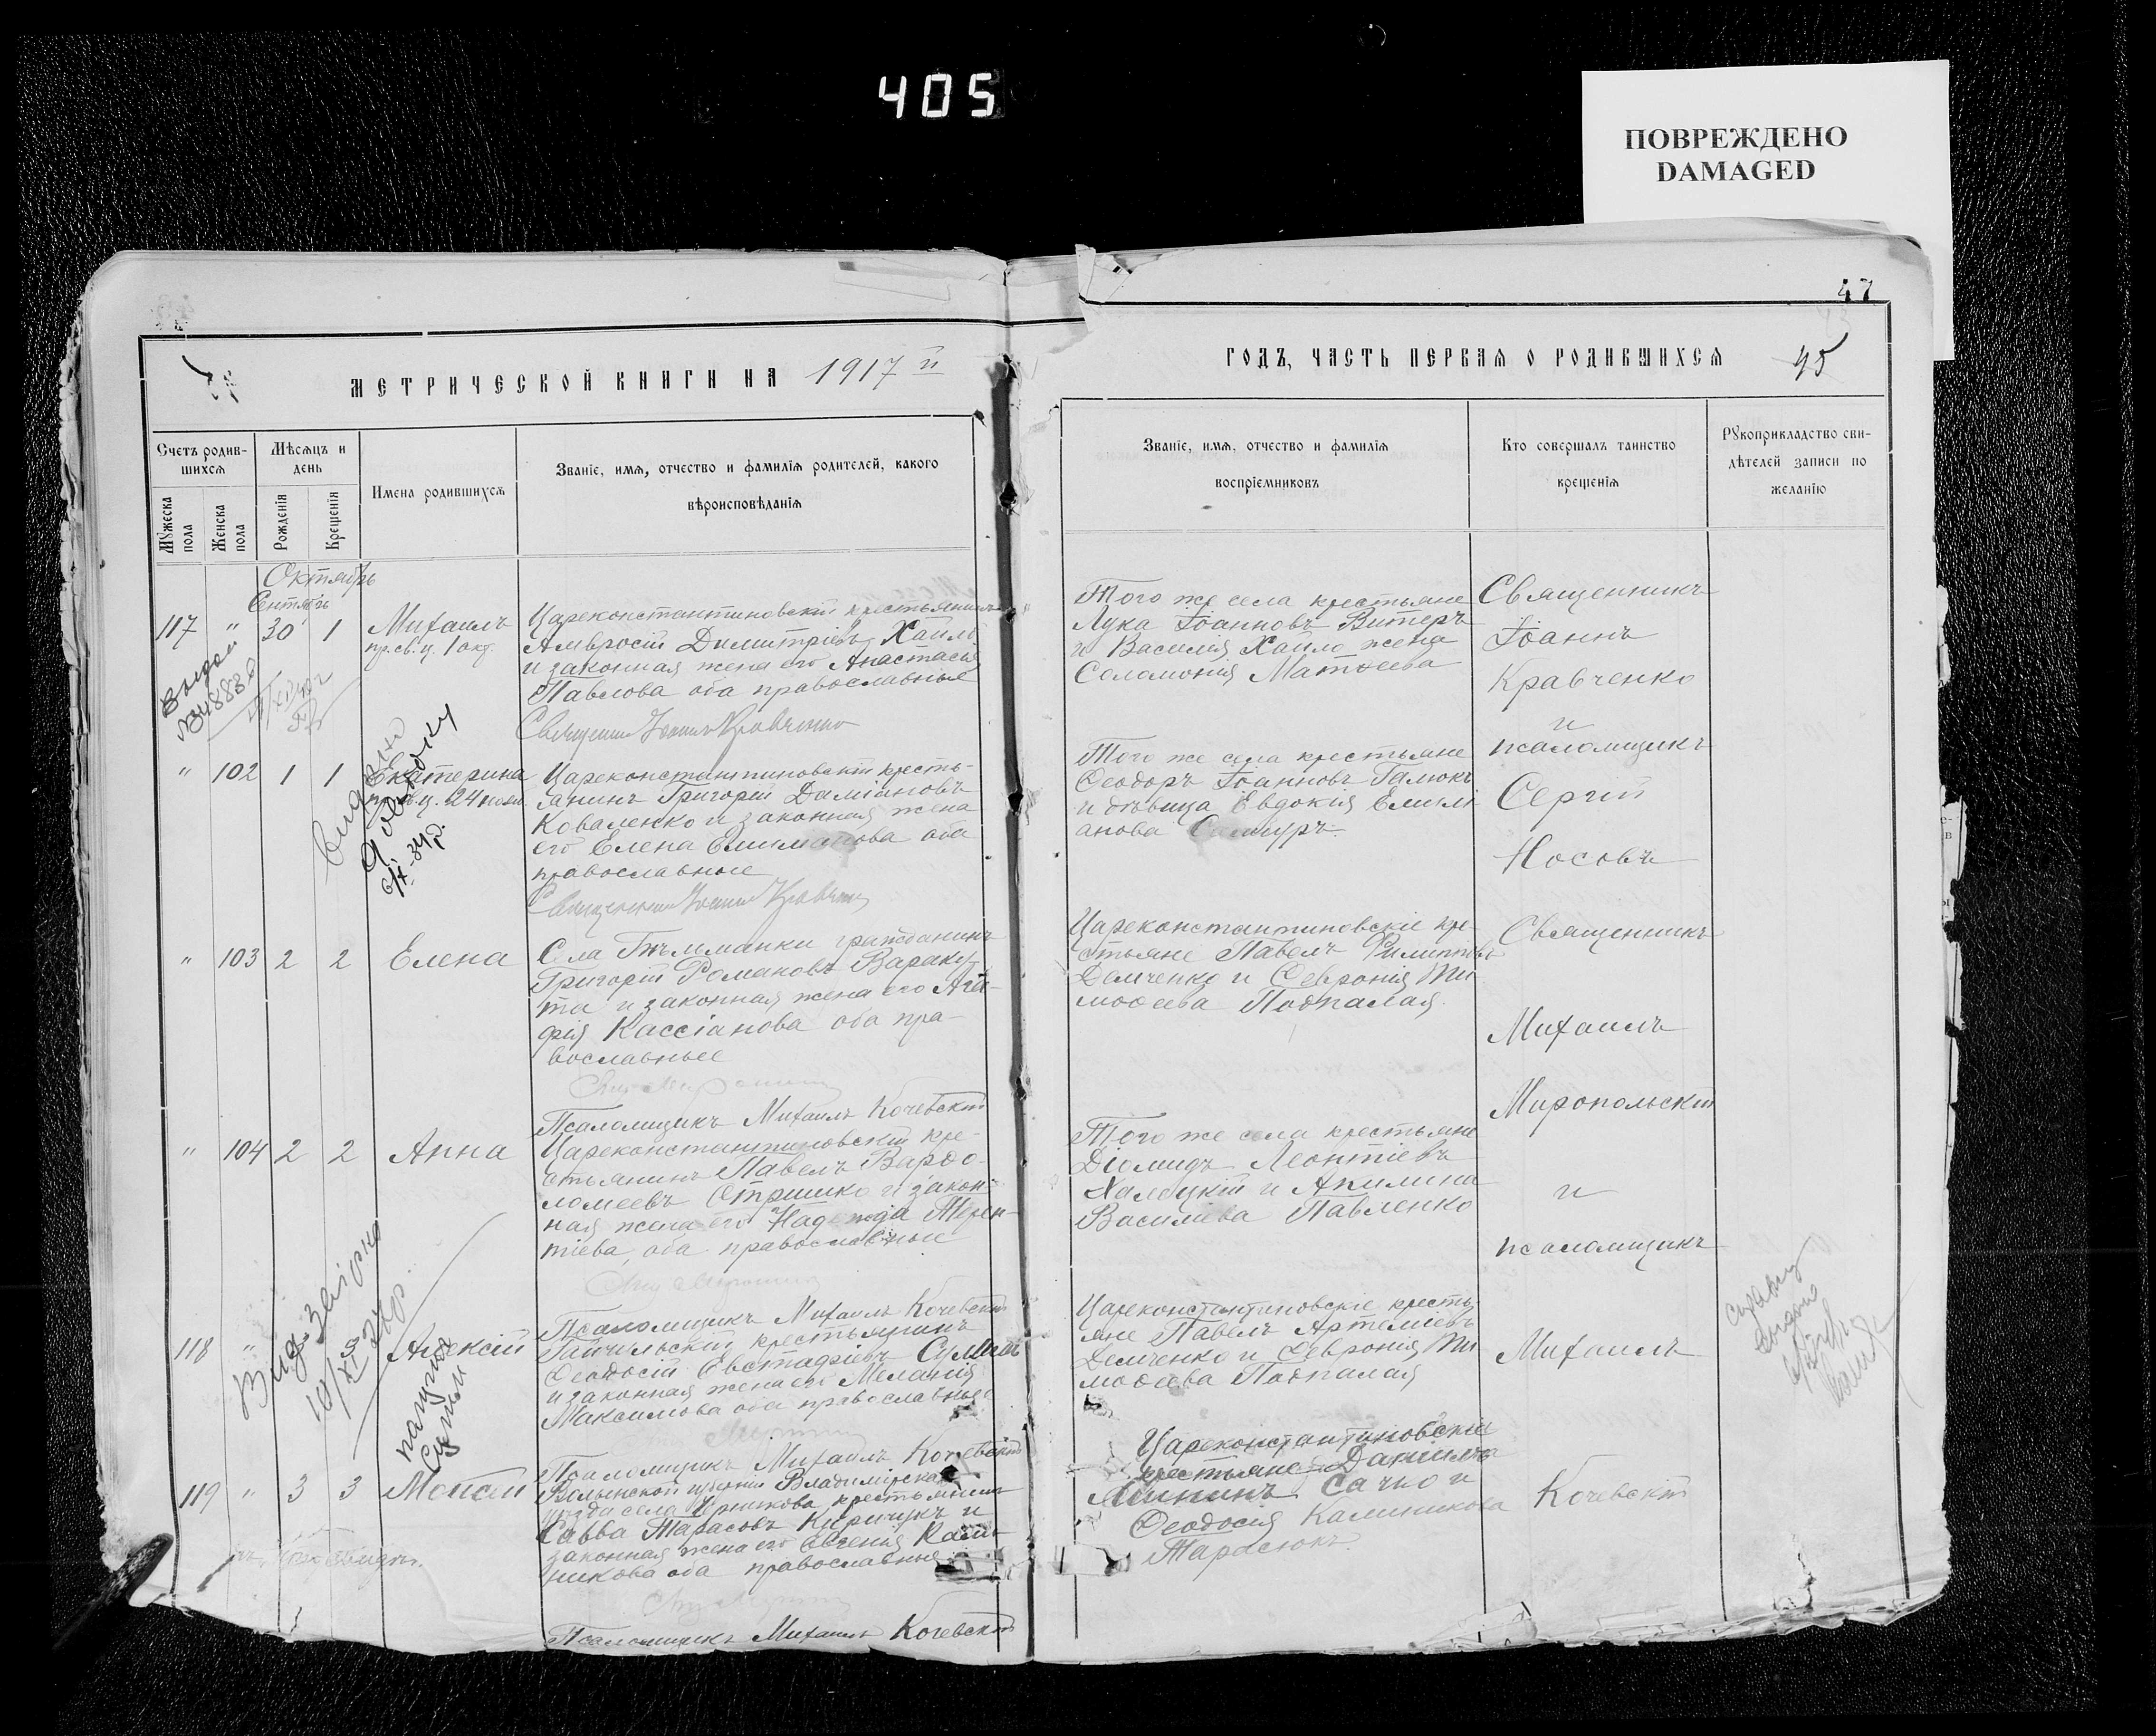 405
ПОВРЕЖДЕНО
DAMAGED
47
МЕТРИЧЕСКОЙ КНИГИ НА 1917 й
ГОДЪ, ЧАСТЬ ПЕРВАЯ О РОДИВШИХСЯ
45
Счетъ родив-
шихся
Мужеска
пола
Женска
пола
Мѣсяцъ и
день
Рожденія
Крещенія
Имена родившихся
Званіе, имя, отчество и фамилія родителей, какого
вѣроисповѣданія
Званіе, имя, отчество и фамилія
воспріемниковъ
Кто совершалъ таинство
крещенія
Рукоприкладство сви-
дѣтелей записи по
желанію
Октябрь
Сентябрь
117 " 30 1 Михаилъ
пр. св. ц. 1 окт.
Цареконстантиновскій крестьянинъ
Амвросій Димитріевъ Хайло
и законная жена его Анастасія
Павлова оба православные
Священникъ Іоаннъ Кравченко
Того же села крестьяне
Лука Іоанновъ Витеръ
и Василія Хайло жена
Соломонія Матѳеева
Священникъ
Іоаннъ
Кравченко
и
псаломщикъ
Сергій
Носовъ
" 102 1 1 Екатерина
24 нояб.
Цареконстантиновскій кресть-
янинъ Григорій Даміановъ
Коваленко и законная жена
его Елена оба
православные
Священникъ Іоаннъ Кравченко
Того же села крестьяне
Ѳеодоръ Іоанновъ Галюкъ
и дѣвица Евдокія Емилі
анова
" 103 2 2 Елена
Села Гѣльманки гражданинъ
Григорій Романовъ Вараку-
та и законная жена его Ага-
фія Кассіанова оба пра-
вославные
Псаломщикъ Михаилъ Кочевскій
Цареконстантиновскіе кре-
стьяне Павелъ Филипповъ
Демченко и Ѳевронія Ти
моѳеева Подпалая.
Священникъ
Михаилъ
Миропольскій
и
псаломщикъ
Михаилъ
Кочевскій
" 104 2 2 Анна
Цареконстантиновскій кре-
стьянинъ Павелъ Варѳо-
ломеевъ Стришко и закон-
ная жена его Надежда Терен-
тіева, оба православные
Псаломщикъ Михаилъ Кочевскій
Того же села крестьяне
Діомидъ Леонтіевъ
Халецкій и Акилина
Василіева Павленко
118 " Алексій
Гайчульскій крестьянинъ
Ѳеодосій Евстафіевъ
и законная жена его Меланія
Максимова оба православные
Псаломщикъ Михаилъ Кочевскій
Цареконстантиновскіе кресть
яне Павелъ Артеміевъ
Демченко и Ѳевронія Ти
моѳеева Подпалая
119 " 3 3 Моисей
Волынской губерніи Владимірскаго
уѣзда села крестьянинъ
Савва Тарасовъ Киричукъ и
законная жена его Евгенія Кали-
никова оба православные
Псаломщикъ Михаилъ Кочевскій
Цареконстантиновскіе
крестьяне Даніилъ
Сачко и
Ѳеодосія Калиникова
Тарасюкъ.